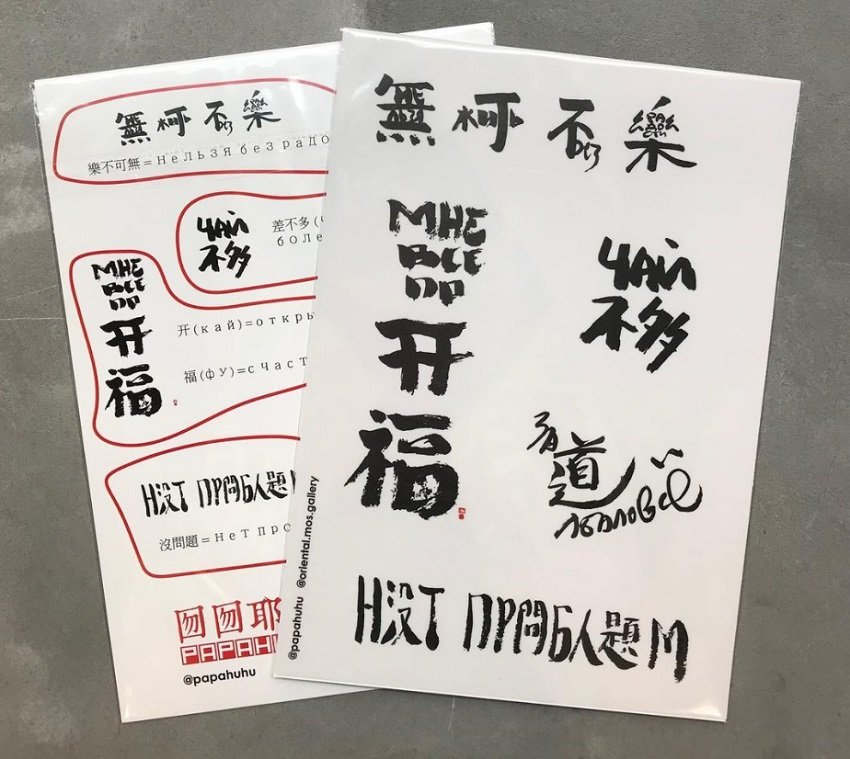 無 樂
樂不可無=Нельзя без радо
ЧАЙ
不多
差不多(Ч
боле
МНЕ
ВСЕ
ПР
开
福
开(кай)=откры
福(фу)=счаст
Н没Т ПР問БЛ題М
沒問題=Нет про
PAPAH
@papahuhu
無 樂
МНЕ
ВСЕ
ПР
开
福
ЧАЙ
不多
有道
Н没Т ПР問БЛ題М
@papahuhu @oriental.mos.gallery